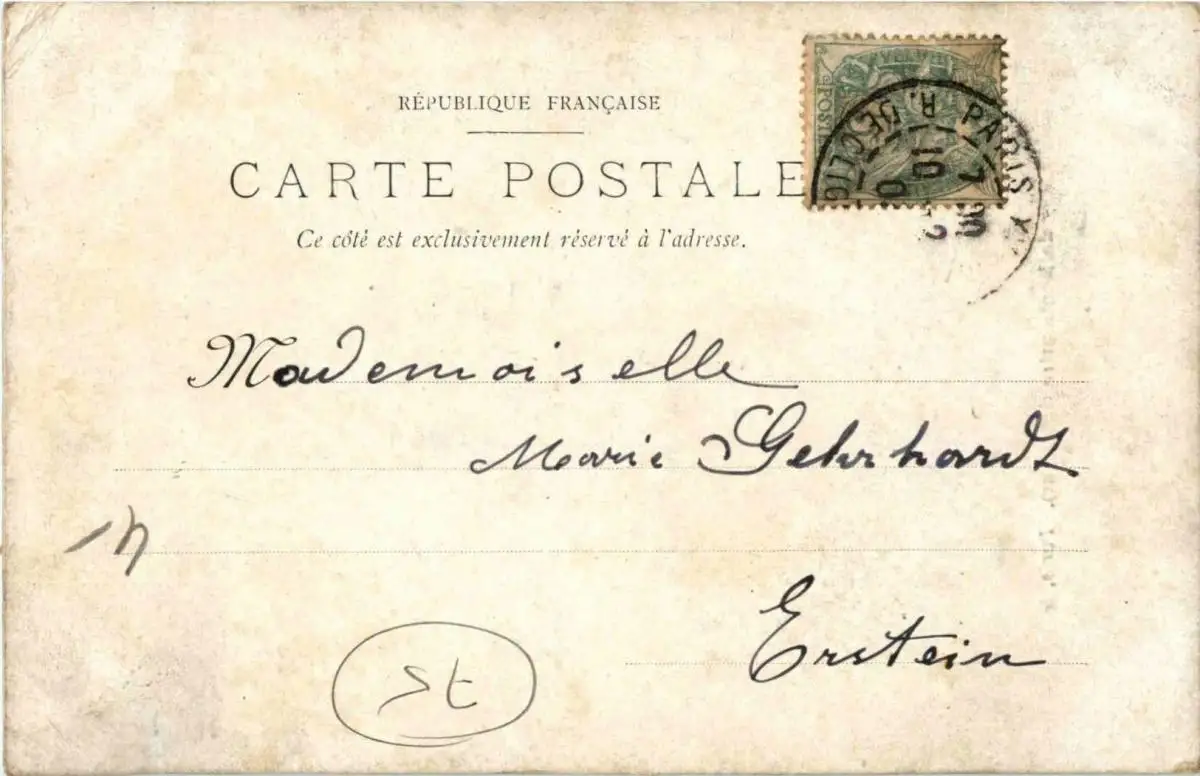 RÉPUBLIQUE FRANÇAISE
CARTE POSTALE
Ce côté est exclusivement réservé à l'adresse.
PARIS
R.
7
10
Mademoiselle
Marie Gehrhardt
Erstein
St